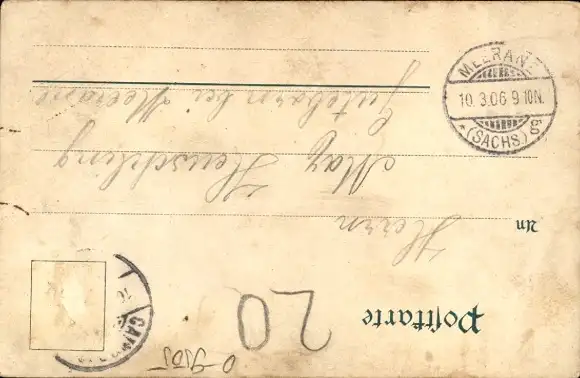 Postkarte
An
Herrn
Max Heuschling
Gutsbes. bei Meerane
MEERANE
10.3.06 9-10N.
* (SACHS.) bb
20